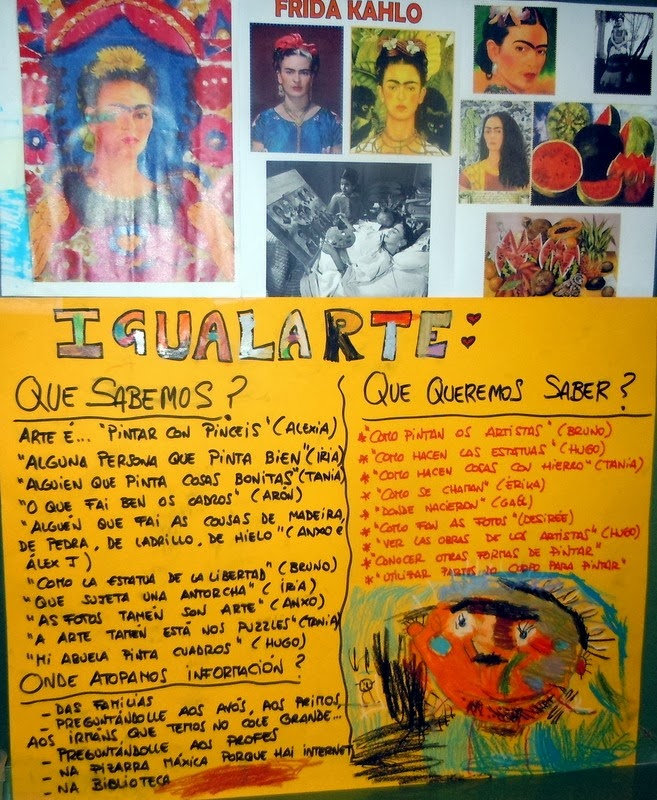 FRIDA KAHLO
IGUALARTE:
QUE SABEMOS?
ARTE É... "PINTAR CON PINCEIS" (ALEXIA)
"ALGUNA PERSONA QUE PINTA BIEN" (IRIA)
"ALGUIEN QUE PINTA COSAS BONITAS" (TANIA)
"O QUE FAI BEN OS CADROS" (ARÓN)
"ALGUÉN QUE FAI AS COUSAS DE MADEIRA,
DE PEDRA, DE LADRILLO, DE HIELO" (ANXO E
ÁLEX T)
"COMO LA ESTATUA DE LA LIBERTAD" (BRUNO)
"QUE SUJETA UNA ANTORCHA" (IRIA)
"AS FOTOS TAMÉN SON ARTE" (ANXO)
"A ARTE TAMÉN ESTÁ NOS PUZZLES" (TANIA)
"MI ABUELA PINTA CUADROS" (HUGO)
ONDE ATOPAMOS INFORMACIÓN?
- DAS FAMILIAS
- PREGUNTÁNDOLLE AOS AVÓS, AOS PRIMOS,
AOS IRMÁNS, QUE TEMOS NO COLE GRANDE...
- PREGUNTÁNDOLLE AOS PROFES
- NA PIZARRA MÁXICA PORQUE HAI INTERNET
- NA BIBLIOTECA
QUE QUEREMOS SABER?
* "COMO PINTAN OS ARTISTAS" (BRUNO)
* "COMO HACEN LAS ESTATUAS" (HUGO)
* "COMO HACEN COSAS CON HIERRO" (TANIA)
* "COMO SE CHAMAN" (ÉRIKA)
* "DONDE NACIERON" (GABL)
* "COMO FAN AS FOTOS" (DESIRÉE)
* "VER LAS OBRAS DE LOS ARTISTAS" (HUGO)
* "CONOCER OTRAS FORMAS DE PINTAR"
* "UTILIZAR PARTES NO CORPO PARA PINTAR"